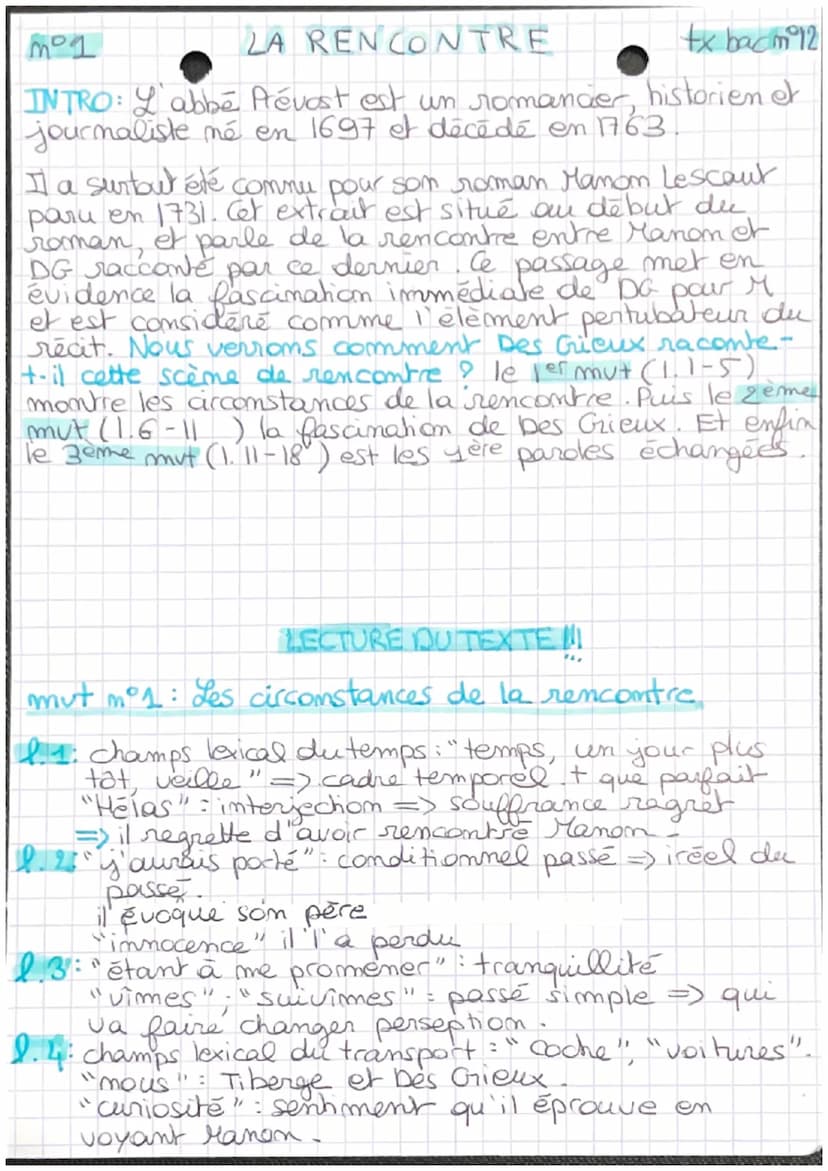 n°1 LA RENCONTRE tx bac n°12
INTRO: L'abbé Prévost est un romancier, historien et
journaliste né en 1697 et décédé en 1763.
Il a surtout été connu pour son roman Manon Lescaut
paru en 1731. Cet extrait est situé au début du
roman, et parle de la rencontre entre Manon et
DG racconté par ce dernier. Ce passage met en
évidence la fascination immédiate de DG pour M
et est considéré comme l'élément pertubateur du
récit. Nous verrons comment Des Grieux raconte-
t-il cette scène de rencontre ? le 1er mvt (l.1-5)
montre les circonstances de la rencontre. Puis le 2ème
mvt (l.6-11 ) la fascination de Des Grieux. Et enfin
le 3ème mvt (l.11-18 ) est les 1ère paroles échangées.
LECTURE DU TEXTE !!!
mvt n°1 : Les circonstances de la rencontre.
l.1: champs lexical du temps : "temps, un jour plus
tôt, veille" => cadre temporel. + que parfait
"Hélas" : interjection => souffrance ragret
=> il regrette d'avoir rencontré Manon.
l.2: "j'aurais porté" : conditionnel passé => iréel du
passé.
il évoque son père
"innocence" il l'a perdu
l.3: "étant à me promener" : tranquillité
"vîmes" ; "suivîmes" : passé simple => qui
va faire changer perception.
l.4: champs lexical du transport : "coche", "voitures".
"nous" : Tiberge et Des Grieux.
"curiosité" : sentiment qu'il éprouve en
voyant Manon.